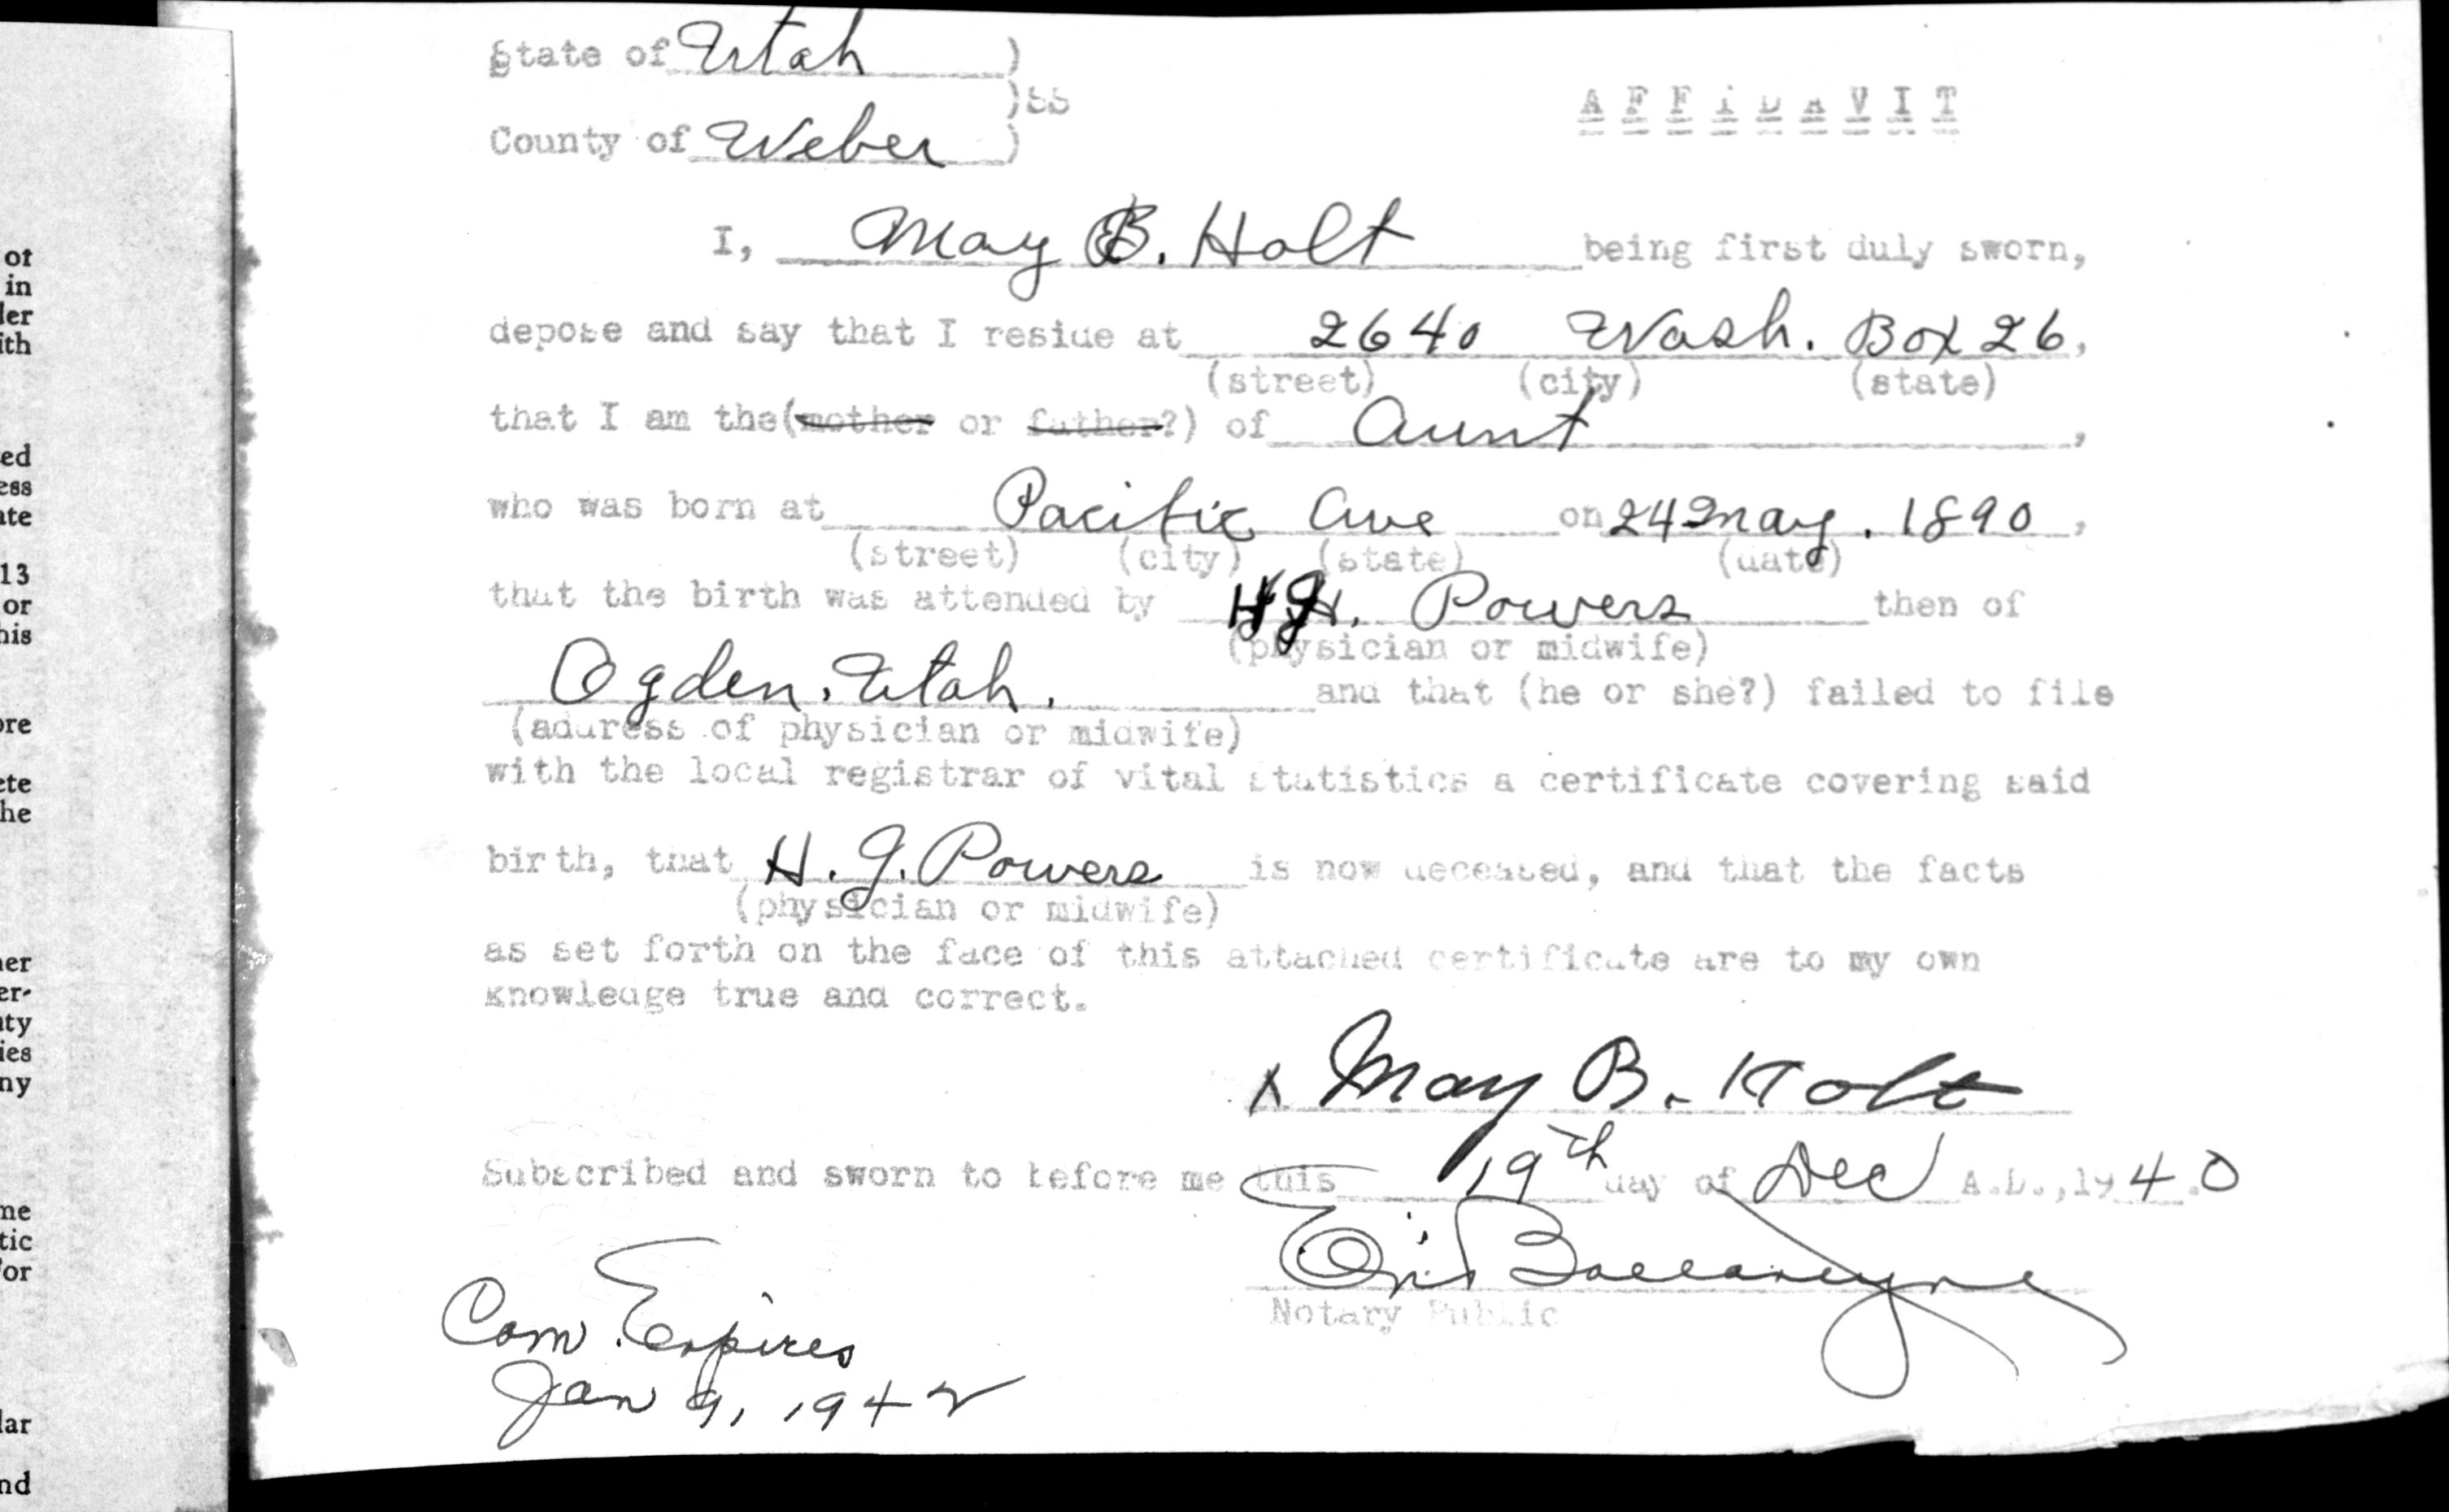 of
in
der
ith
ed
ess
ate
13
or
his
ore
ete
he
her
er-
nty
ies
ny
me
tic
For
lar
nd
State of Utah )
)SS
AFFIDAVIT
County of Weber )
I, May B. Holt being first duly sworn,
depose and say that I reside at 2640 Wash. Box 26,
(street) (city) (state)
that I am the (mother or father?) of Aunt,
who was born at Pacific Ave on 24 May. 1890,
(street) (city) (state) (date)
that the birth was attended by Powers then of
(physician or midwife)
Ogden. Utah. and that (he or she?) failed to file
(address of physician or midwife)
with the local registrar of vital statistics a certificate covering said
birth, that H. J. Powers is now deceased, and that the facts
(physician or midwife)
as set forth on the face of this attached certificate are to my own
knowledge true and correct.
x May B. Holt
Subscribed and sworn to before me this 19th day of Dec A.D., 1940
Notary Public
Com. Expires
Jan 9, 1942